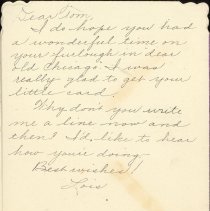 Dear Tom,
I do hope you had
a wonderful time on
your furlough in dear
old Chicago. I was
really glad to get your
little card.
Why don't you write
me a line now and
then? I'd like to hear
how you're doing.
Best wishes!
Lois